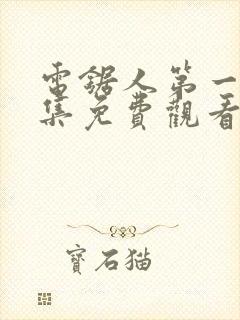 電鋸人第一
集免費觀看
寶石猫